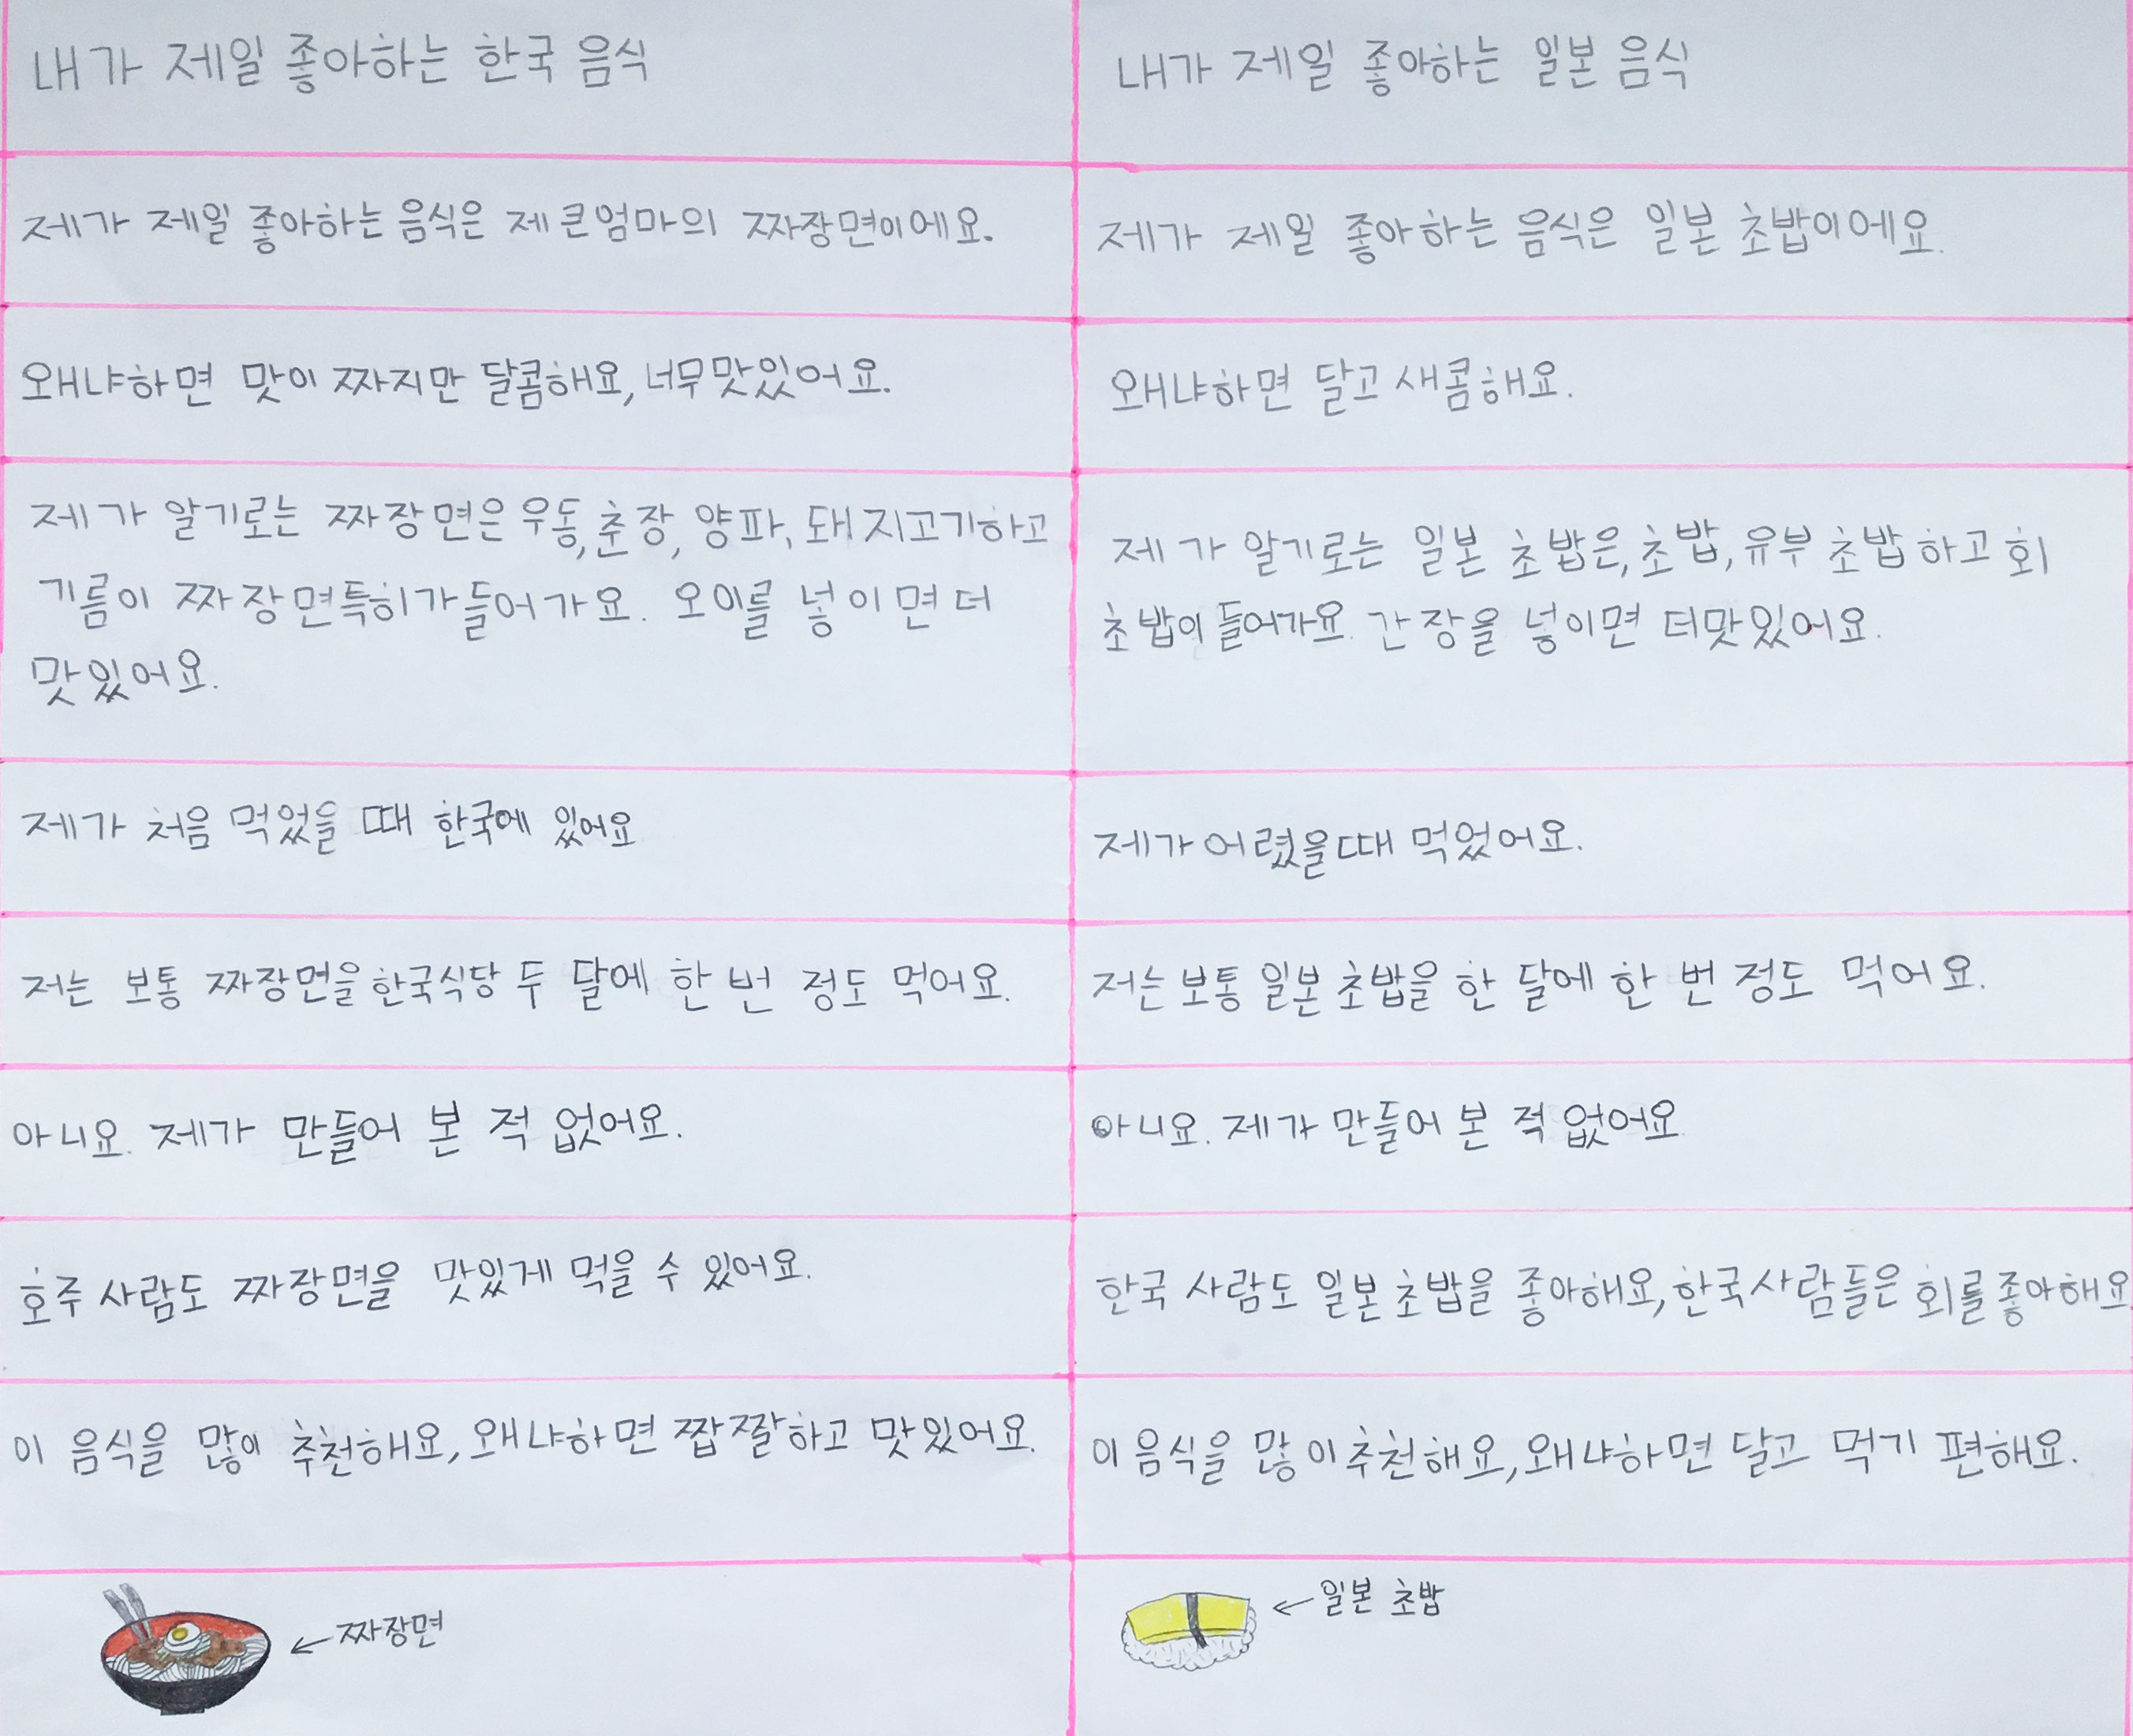 내가 제일 좋아하는 한국 음식
내가 제일 좋아하는 일본 음식
제가 제일 좋아하는 음식은 제 큰엄마의 짜장면이에요.
제가 제일 좋아하는 음식은 일본 초밥이에요.
왜냐하면 맛이 짜지만 달콤해요, 너무맛있어요.
왜냐하면 달고 새콤해요.
제가 알기로는 짜장면은 우동, 춘장, 양파, 돼지고기하고
기름이 짜장면특히가 들어가요. 오이를 넣이면 더
맛있어요.
제가 알기로는 일본 초밥은, 초밥, 유부 초밥 하고 회
초밥이 들어가요. 간장을 넣이면 더맛있어요.
제가 처음 먹었을 때 한국에 있어요
제가 어렸을때 먹었어요.
저는 보통 짜장면을 한국식당 두 달에 한 번 정도 먹어요.
저는 보통 일본 초밥을 한 달에 한 번 정도 먹어요.
아니요. 제가 만들어 본 적 없어요.
아니요. 제가 만들어 본 적 없어요
호주 사람도 짜장면을 맛있게 먹을 수 있어요.
한국 사람도 일본 초밥을 좋아해요, 한국사람들은 회를 좋아해요
이 음식을 많이 추천해요, 왜냐하면 짭짤하고 맛있어요.
이 음식을 많이 추천해요, 왜냐하면 달고 먹기 편해요.
←짜장면
←일본 초밥